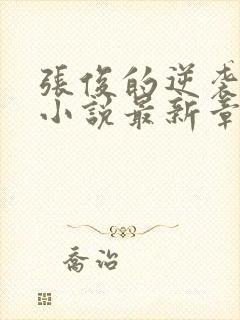 張俊的逆袭
小說最新章
喬治